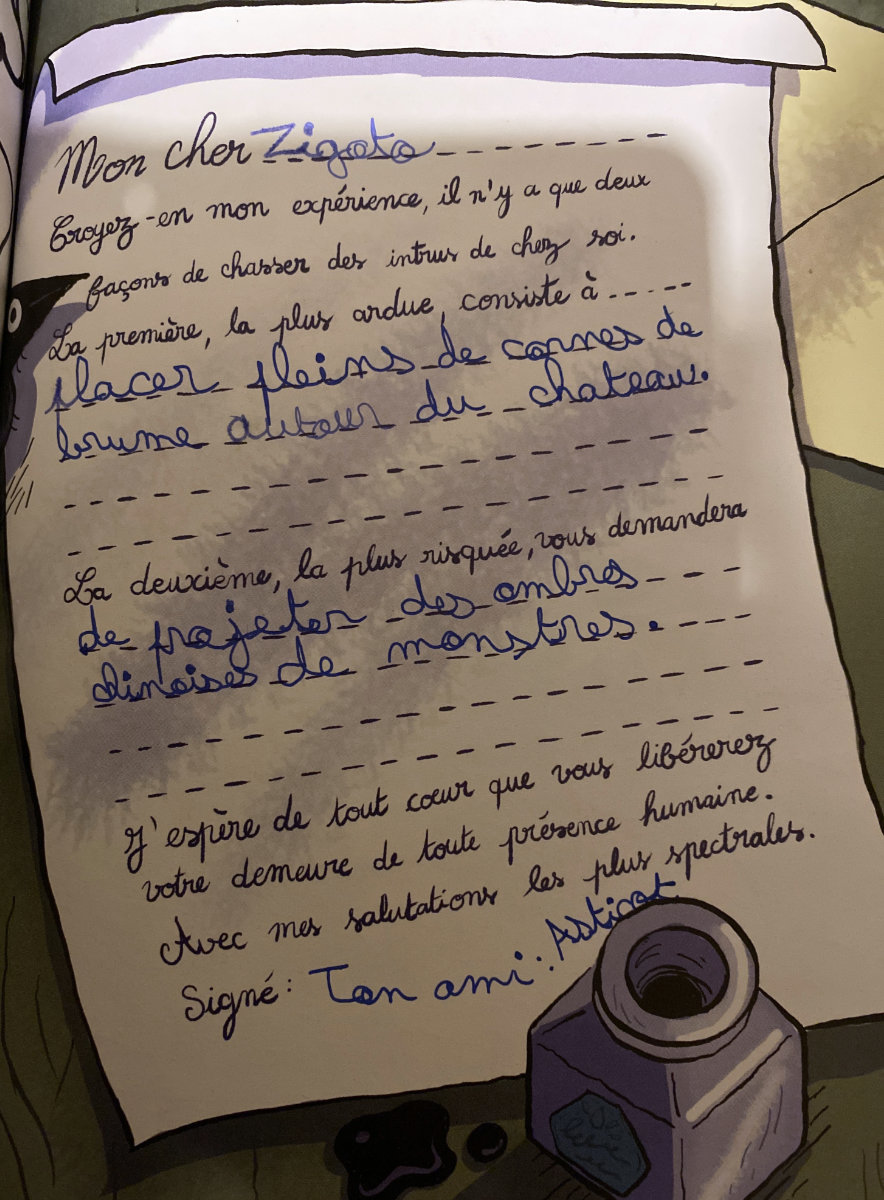 Mon cher Zigoto
Croyez-en mon expérience, il n'y a que deux
façons de chasser des intrus de chez soi.
La première, la plus ardue, consiste à
placer pleins de cornes de
brume autour du chateau.
La deuxième, la plus risquée, vous demandera
de projeter des ombres
chinoises de monstres.
J'espère de tout cœur que vous libérerez
votre demeure de toute présence humaine.
Avec mes salutations les plus spectrales.
Signé : Ton ami : Asticot